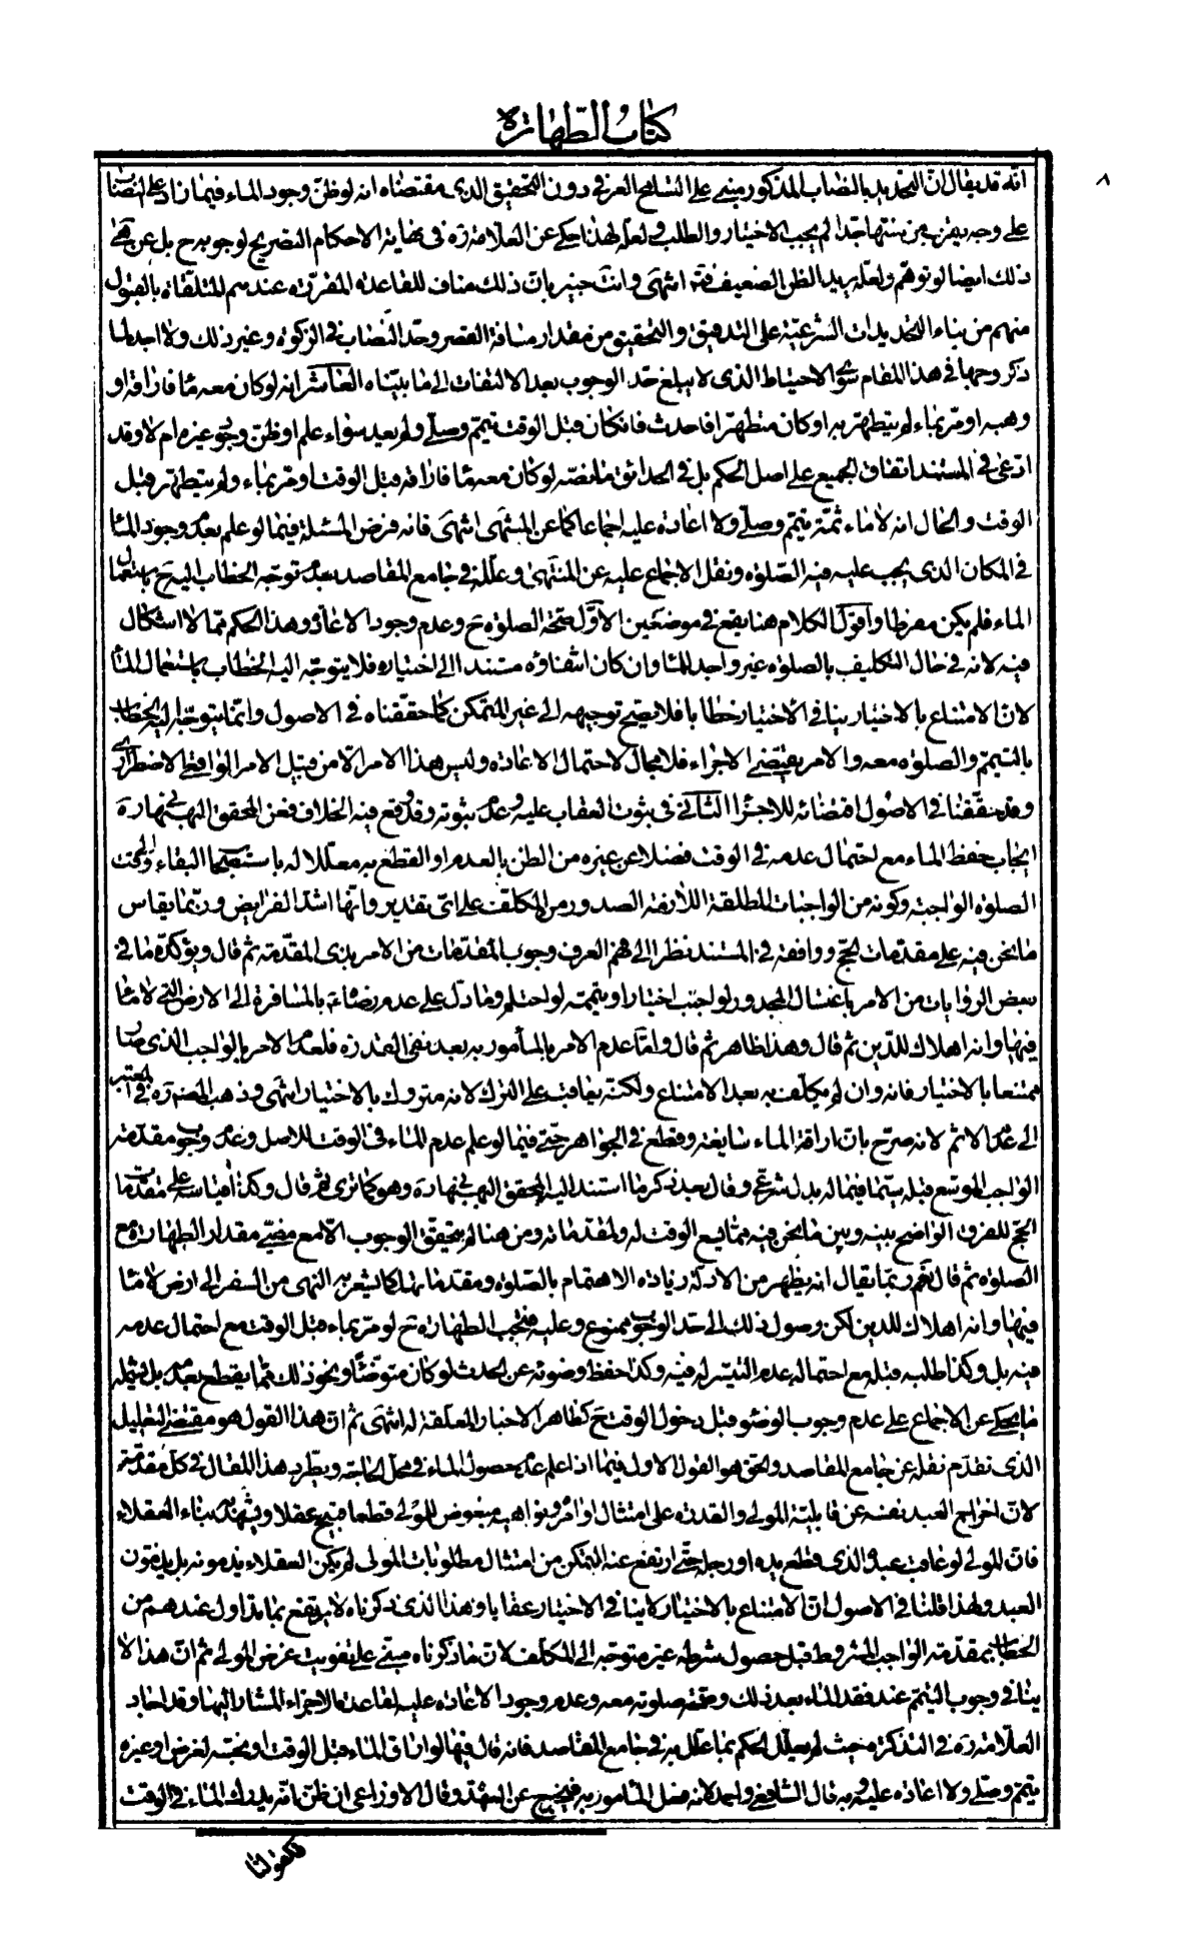 كتاب الطهارة
٨
انه قد يقال ان التحديد بالنصاب المذكور مبنى على التسامح العرفى دون التحقيق الذى مقتضاه انه لو ظن وجود الماء فيما زاد على النصاب
على وجه يقرب من منتهاه جدا لم يجب الاختبار والطلب ولعله لهذا حكى عن العلامة ره فى نهاية الاحكام التصريح لوجوبه ح بل عن
ذلك ايضا لو توهم ولعله يريد الظن الضعيف فتم انتهى وانت خبير بان ذلك مناف للقاعدة المقررة عندهم المتلقاة بالقبول
منهم من بناء التحديدات الشرعية على التدقيق والتحقيق من مقدار مسافة القصر وحد النصاب فى الزكوة وغير ذلك ولا اجد لما
ذكر وجها فى هذا المقام سوى الاحتياط الذى لا يبلغ حد الوجوب بعد الالتفات الى ما بيناه العاشر انه لو كان معه ماء فاراقه او
وهبه او مر بماء لم يتطهر به او كان متطهرا فاحدث فان كان قبل الوقت تيمم وصلى ولم يعد سواء علم او ظن وجود غيره ام لا وقد
ادعى فى المستند اتفاق الجميع على اصل الحكم بل فى الحدائق ما نصه لو كان معه ماء فاراقه قبل الوقت او مر بماء ولم يتطهر قبل
الوقت والحال انه لا ماء ثمة تيمم وصلى ولا اعادة عليه اجماعا كما عن المنتهى انتهى فانه فرض المسئلة فيما لو علم بعدم وجود الماء
فى المكان الذى يجب عليه فيه الصلوة ونقل الاجماع عليه عن المنتهى وعلله فى جامع المقاصد بعدم توجه الخطاب اليه ح باستعمال
الماء فلم يكن مفرطا واقول الكلام هنا يقع فى موضعين الاول صحة الصلوة ح وعدم وجود الاعادة وهذا الحكم مما لا اشكال
فيه لانه فى حال التكليف بالصلوة غير واجد للماء وان كان انتفاؤه مستندا الى اختياره فلا يتوجه اليه الخطاب باستعمال الماء
لان الامتناع بالاختيار ينافى الاختيار خطابا فلا يصح توجيهه الى غير المتمكن كما حققناه فى الاصول وانما يتوجه اليه الخطاب
بالتيمم والصلوة معه والامر يقتضى الاجزاء فلا مجال لاحتمال الاعادة وليس هذا الامر الا من قبيل الامر الواقعى الاضطرارى
وقد حققنا فى الاصول اقتضائه للاجزاء الثانى فى ثبوت العقاب عليه وعدم ثبوته وقد وقع فيه الخلاف فعن المحقق البهبهانى ره
ايجاب حفظ الماء مع احتمال عدمه فى الوقت فضلا عن غيره من الظن بالعدم او القطع به معللا له باستصحاب البقاء
الصلوة الواجبة وكونه من الواجبات المطلقة اللازمة الصدور من المكلف على اى تقدير وانها اشد الفرايض وربما يقاس
ما نحن فيه على مقدمات الحج ووافقه فى المستند نظرا الى فهم العرف وجوب المقدمات من الامر بذى المقدمة ثم قال ويؤكده ما فى
بعض الروايات من الامر باغتسال المجدور لو اجنب اختيارا وبتيممه لو احتلم وما دل على عدم رضائه بالمسافرة الى الارض التى لا ماء
فيها وانه اهلاك للدين ثم قال وهذا ظاهر ثم قال واما عدم الامر بالمأمور به بعد نفى القدرة فلعدم الامر بالواجب الذى صار
ممتنعا بالاختيار فانه وان لم يكلف به بعد الامتناع ولكنه يعاقب على الترك لانه متروك بالاختيار انتهى وذهب المصنف ره فى المعتبر
الى عدم الاثم لانه صرح بان اراقة الماء سايغة وقطع فى الجواهر حتى فيما لو علم عدم الماء فى الوقت للاصل وعدم وجوب مقدمة
الواجب الموسع قبله سيما فيما له بدل شرعى وقال بعد ذكر ما استند اليه المحقق البهبهانى ره وهو كما ترى ثم قال وكذا قياسه على مقدمات
الحج للفرق الواضح بينه وبين ما نحن فيه مما يسع الوقت له ولمقدماته ومن هنا لم يتحقق الوجوب الا مع مضى مقدار الطهارة مع
الصلوة ثم قال نعم ربما يقال انه يظهر من الادلة زيادة الاهتمام بالصلوة ومقدماتها كما يشعر به النهى من السفر الى ارض لا ماء
فيها وانه اهلاك للدين لكن وصول ذلك الى حد الوجوب ممنوع وعليه فتجب الطهارة ح لو مر بماء قبل الوقت مع احتمال عدمه
فيه بل وكذا طلبه قبله مع احتمال عدم التيسر له فيه وكذا حفظ وضوئه عن الحدث لو كان متوضئا ونحو ذلك مما يقطع بعدمه بل يشمله
ما يحكى عن الاجماع على عدم وجوب الوضوء قبل دخول الوقت كظاهر الاخبار المعلقة له انتهى ثم ان هذا القول هو مقتضى التعليل
الذى تقدم نقله عن جامع المقاصد والحق هو القول الاول فيما اذا علم عدم حصول الماء فى محل الحاجة ويطرد هذا المقال فى كل مقدمة
لان اخراج العبد نفسه عن قابلية المولى والقدرة على امتثال اوامره ونواهيه مبغوض للمولى قطعا قبيح عقلا ويشهد به بناء العقلاء
فان المولى لو عاقب عبده الذى قطع يده او رجله حتى ارتفع عنه التمكن من امتثال مطلوبات المولى لم يكن العقلاء يذمونه بل يذمون
العبد ولهذا قلنا فى الاصول ان الامتناع بالاختيار لا ينافى الاختيار عقابا وهذا الذى ذكرناه لا يرتفع بما تداول عندهم من
الخطاب بمقدمة الواجب المشروط قبل حصول شرطه غير متوجه الى المكلف لان ما ذكرناه مبنى على تفويت غرض المولى ثم ان هذا لا
ينافى وجوب التيمم عند فقد الماء بعد ذلك وصحة صلوته معه وعدم وجود الاعادة عليه لقاعدة الاجزاء المشار اليها وقد اجاد
العلامة ره فى التذكرة حيث لم يعلل الحكم بما علل به فى جامع المقاصد فانه قال فيها لو اراق الماء قبل الوقت او نجسه لغرض او غيره
تيمم وصلى ولا اعادة عليه وبه قال الشافعى واحمد لانه فعل المأمور به فيخرج عن العهدة وقال الاوزاعى ان ظن انه يدرك الماء فى الوقت
فكقولنا